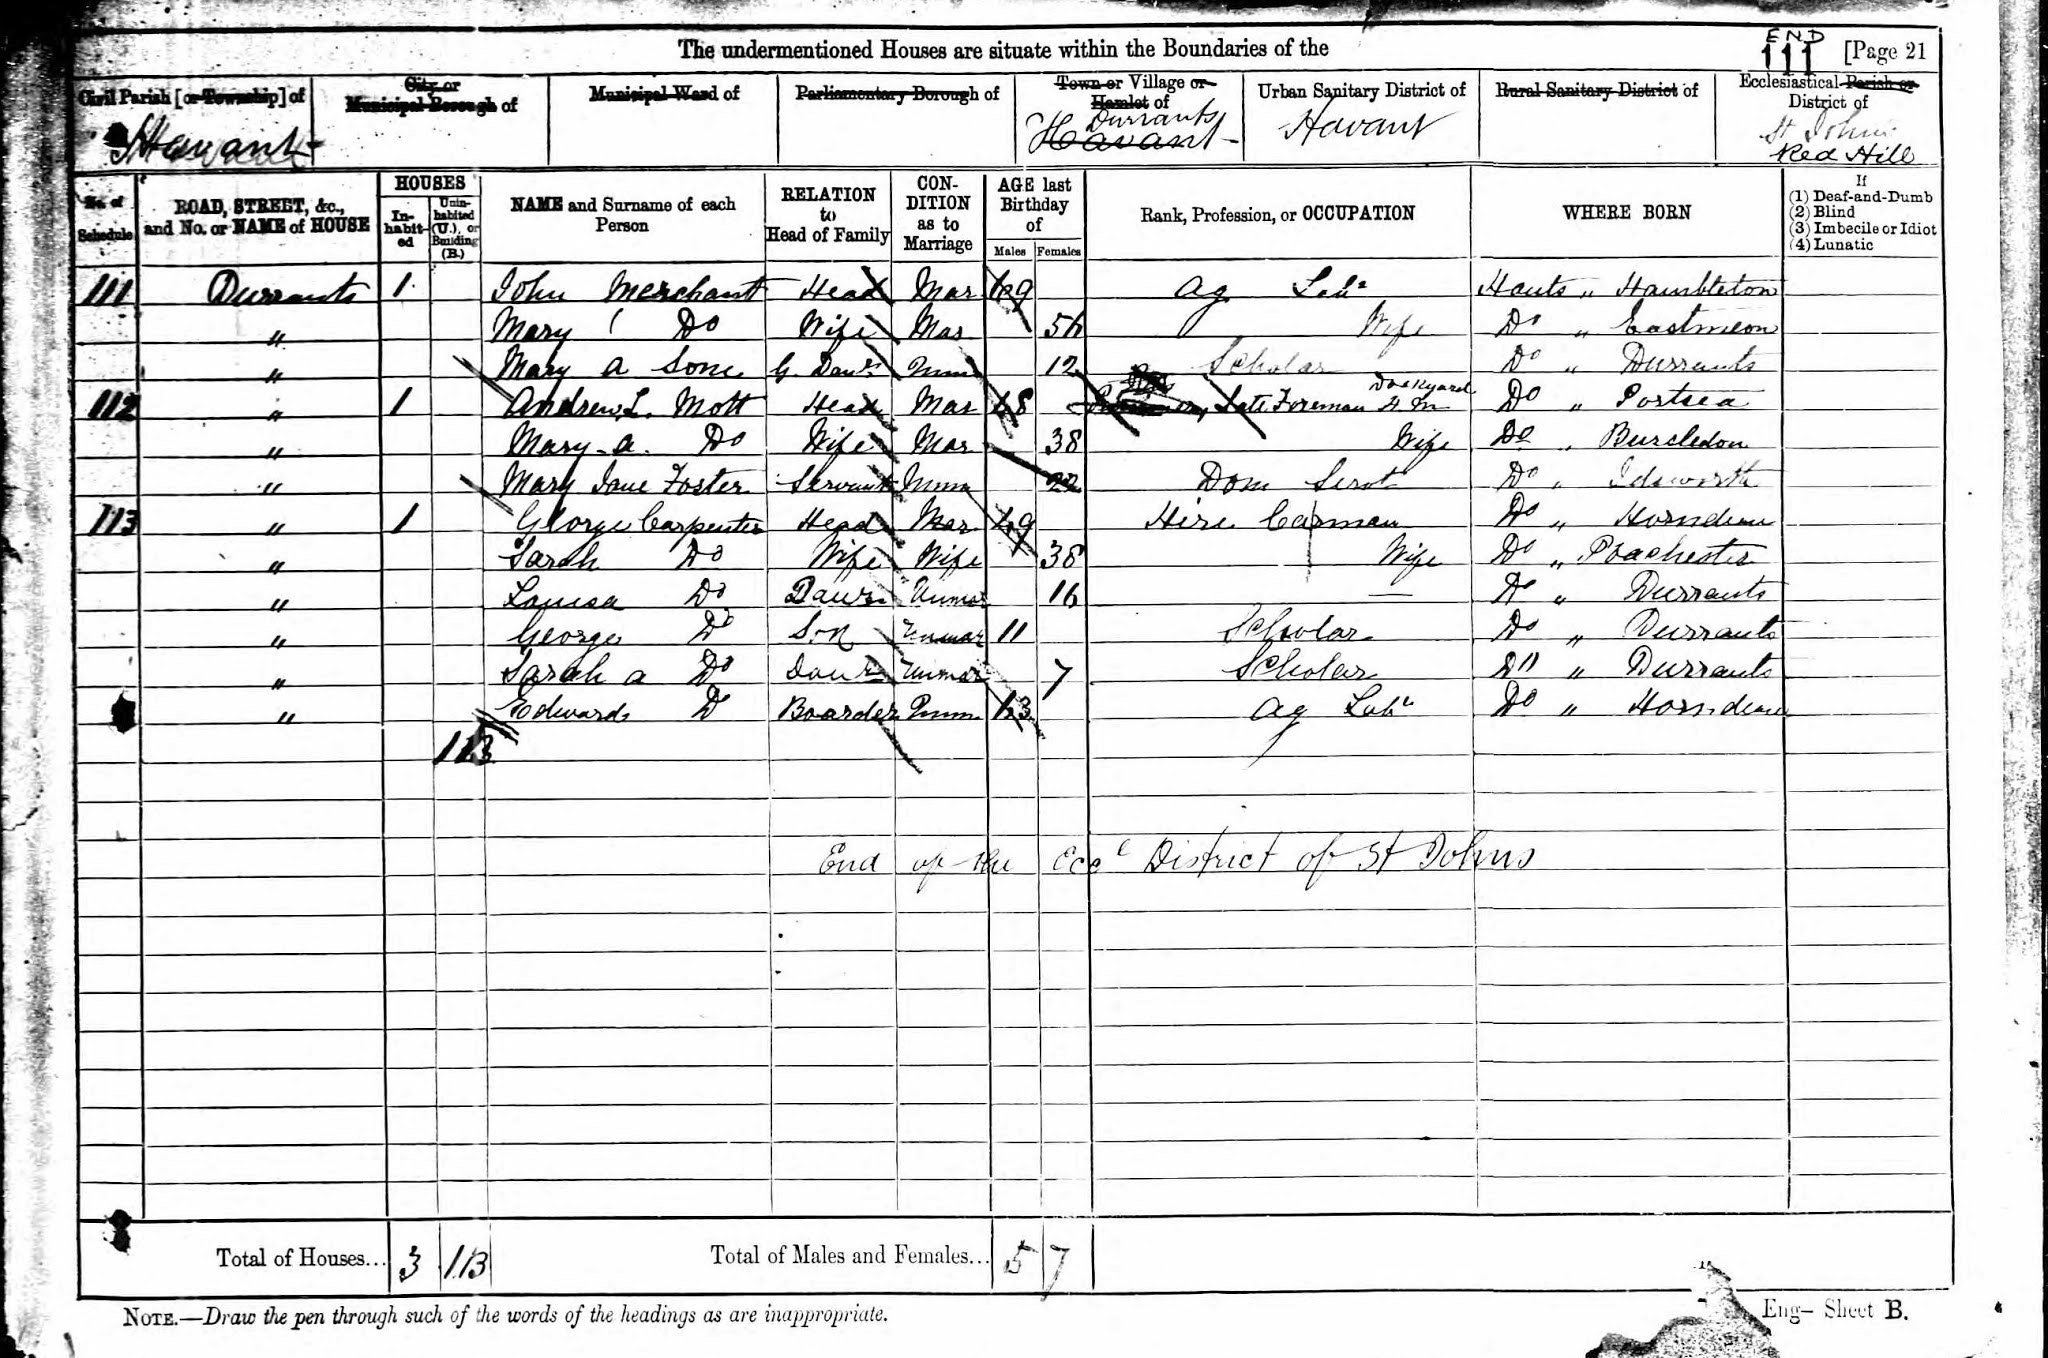 The undermentioned Houses are situate within the Boundaries of the
END
111 [Page 21
Civil Parish [or Township] of
Havant
City or Municipal Borough of
Municipal Ward of
Parliamentary Borough of
Town or Village or Hamlet of
Durrants
Havant
Urban Sanitary District of
Havant
Rural Sanitary District of
Ecclesiastical Parish or District of
St Johns
Red Hill
No. of Schedule
ROAD, STREET, &c., and No. or NAME of HOUSE
HOUSES
In-habit-ed
Unin-habited (U.), or Building (B.)
NAME and Surname of each Person
RELATION to Head of Family
CON-DITION as to Marriage
AGE last Birthday of
Males Females
Rank, Profession, or OCCUPATION
WHERE BORN
If
(1) Deaf-and-Dumb
(2) Blind
(3) Imbecile or Idiot
(4) Lunatic
111 Durrants 1 John Merchant Head Mar 69 Ag Labr Hants " Hambleton
" Mary Do Wife Mar 56 Wife Do " Eastmeon
" Mary A G. Daur 12 Scholar Do " Durrants
112 " 1 Andrew L. Mott Head Mar 68 Late Foreman H M Dockyard Do " Portsea
" Mary A. Do Wife Mar 38 Wife Do " Bursledon
" Mary Jane Foster Servant Unm 22 Dom Servt Do " Idsworth
113 " 1 George Carpenter Head Mar 49 Hire Carman Do " Horndean
" Sarah Do Wife Wife 38 Wife Do " Poachester
" Louisa Do Daur Unmar 16 — Do " Durrants
" George Do Son Unmar 11 Scholar Do " Durrants
" Sarah A Do Daur Unmar 7 Scholar Do " Durrants
" Edward Do Boarder Unm Ag Labr Do " Horndean
End of the Eccl District of St Johns
Total of Houses... 3
Total of Males and Females... 5 7
NOTE.—Draw the pen through such of the words of the headings as are inappropriate.
Eng— Sheet B.